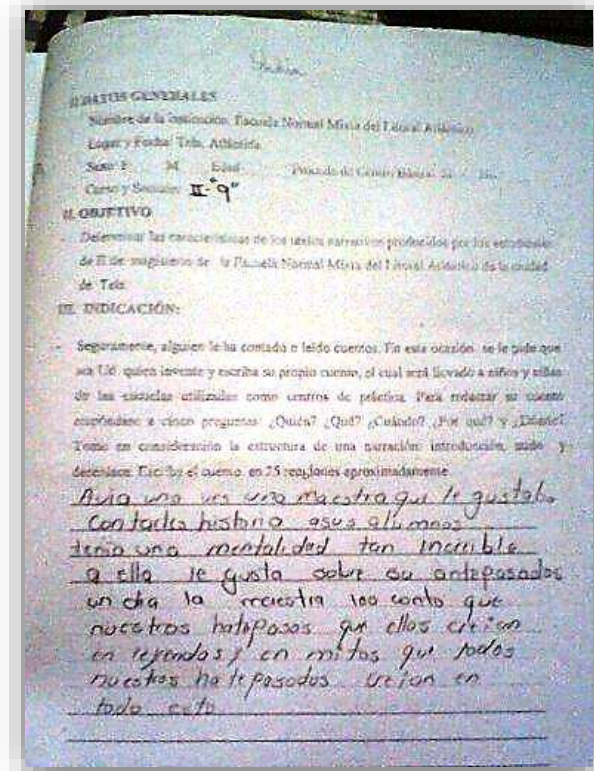 I. DATOS GENERALES
Nombre de la institución: Escuela Normal Mixta del Litoral Atlántico
Lugar y Fecha: Tela, Atlántida
Sexo: F M Edad: Procede de Centro Básico: Si No
Curso y Sección: II-"9"
II. OBJETIVO
Determinar las características de los textos narrativos producidos por los estudiantes
de II de magisterio de la Escuela Normal Mixta del Litoral Atlántico de la ciudad
de Tela.
III. INDICACIÓN:
Seguramente, alguien le ha contado o leído cuentos. En esta ocasión se le pide que
sea Ud. quien invente y escriba su propio cuento, el cual será llevado a niños y niñas
de las escuelas utilizadas como centros de práctica. Para redactar su cuento
respóndase a cinco preguntas: ¿Quién? ¿Qué? ¿Cuándo? ¿Por qué? y ¿Dónde?
Tome en consideración la estructura de una narración: introducción, nudo y
desenlace. Escriba el cuento en 25 renglones aproximadamente
Avia una ves una maestra que le gustaba
contarles historia asus alumnos
tenia una mentalidad tan increible
a ella le gusta sobre su antepasados
un dia la maestra los conto que
nuestros hateposos que ellos creian
en leyendas y en mitos que todos
nuestros hatepasados creian en
todo esto